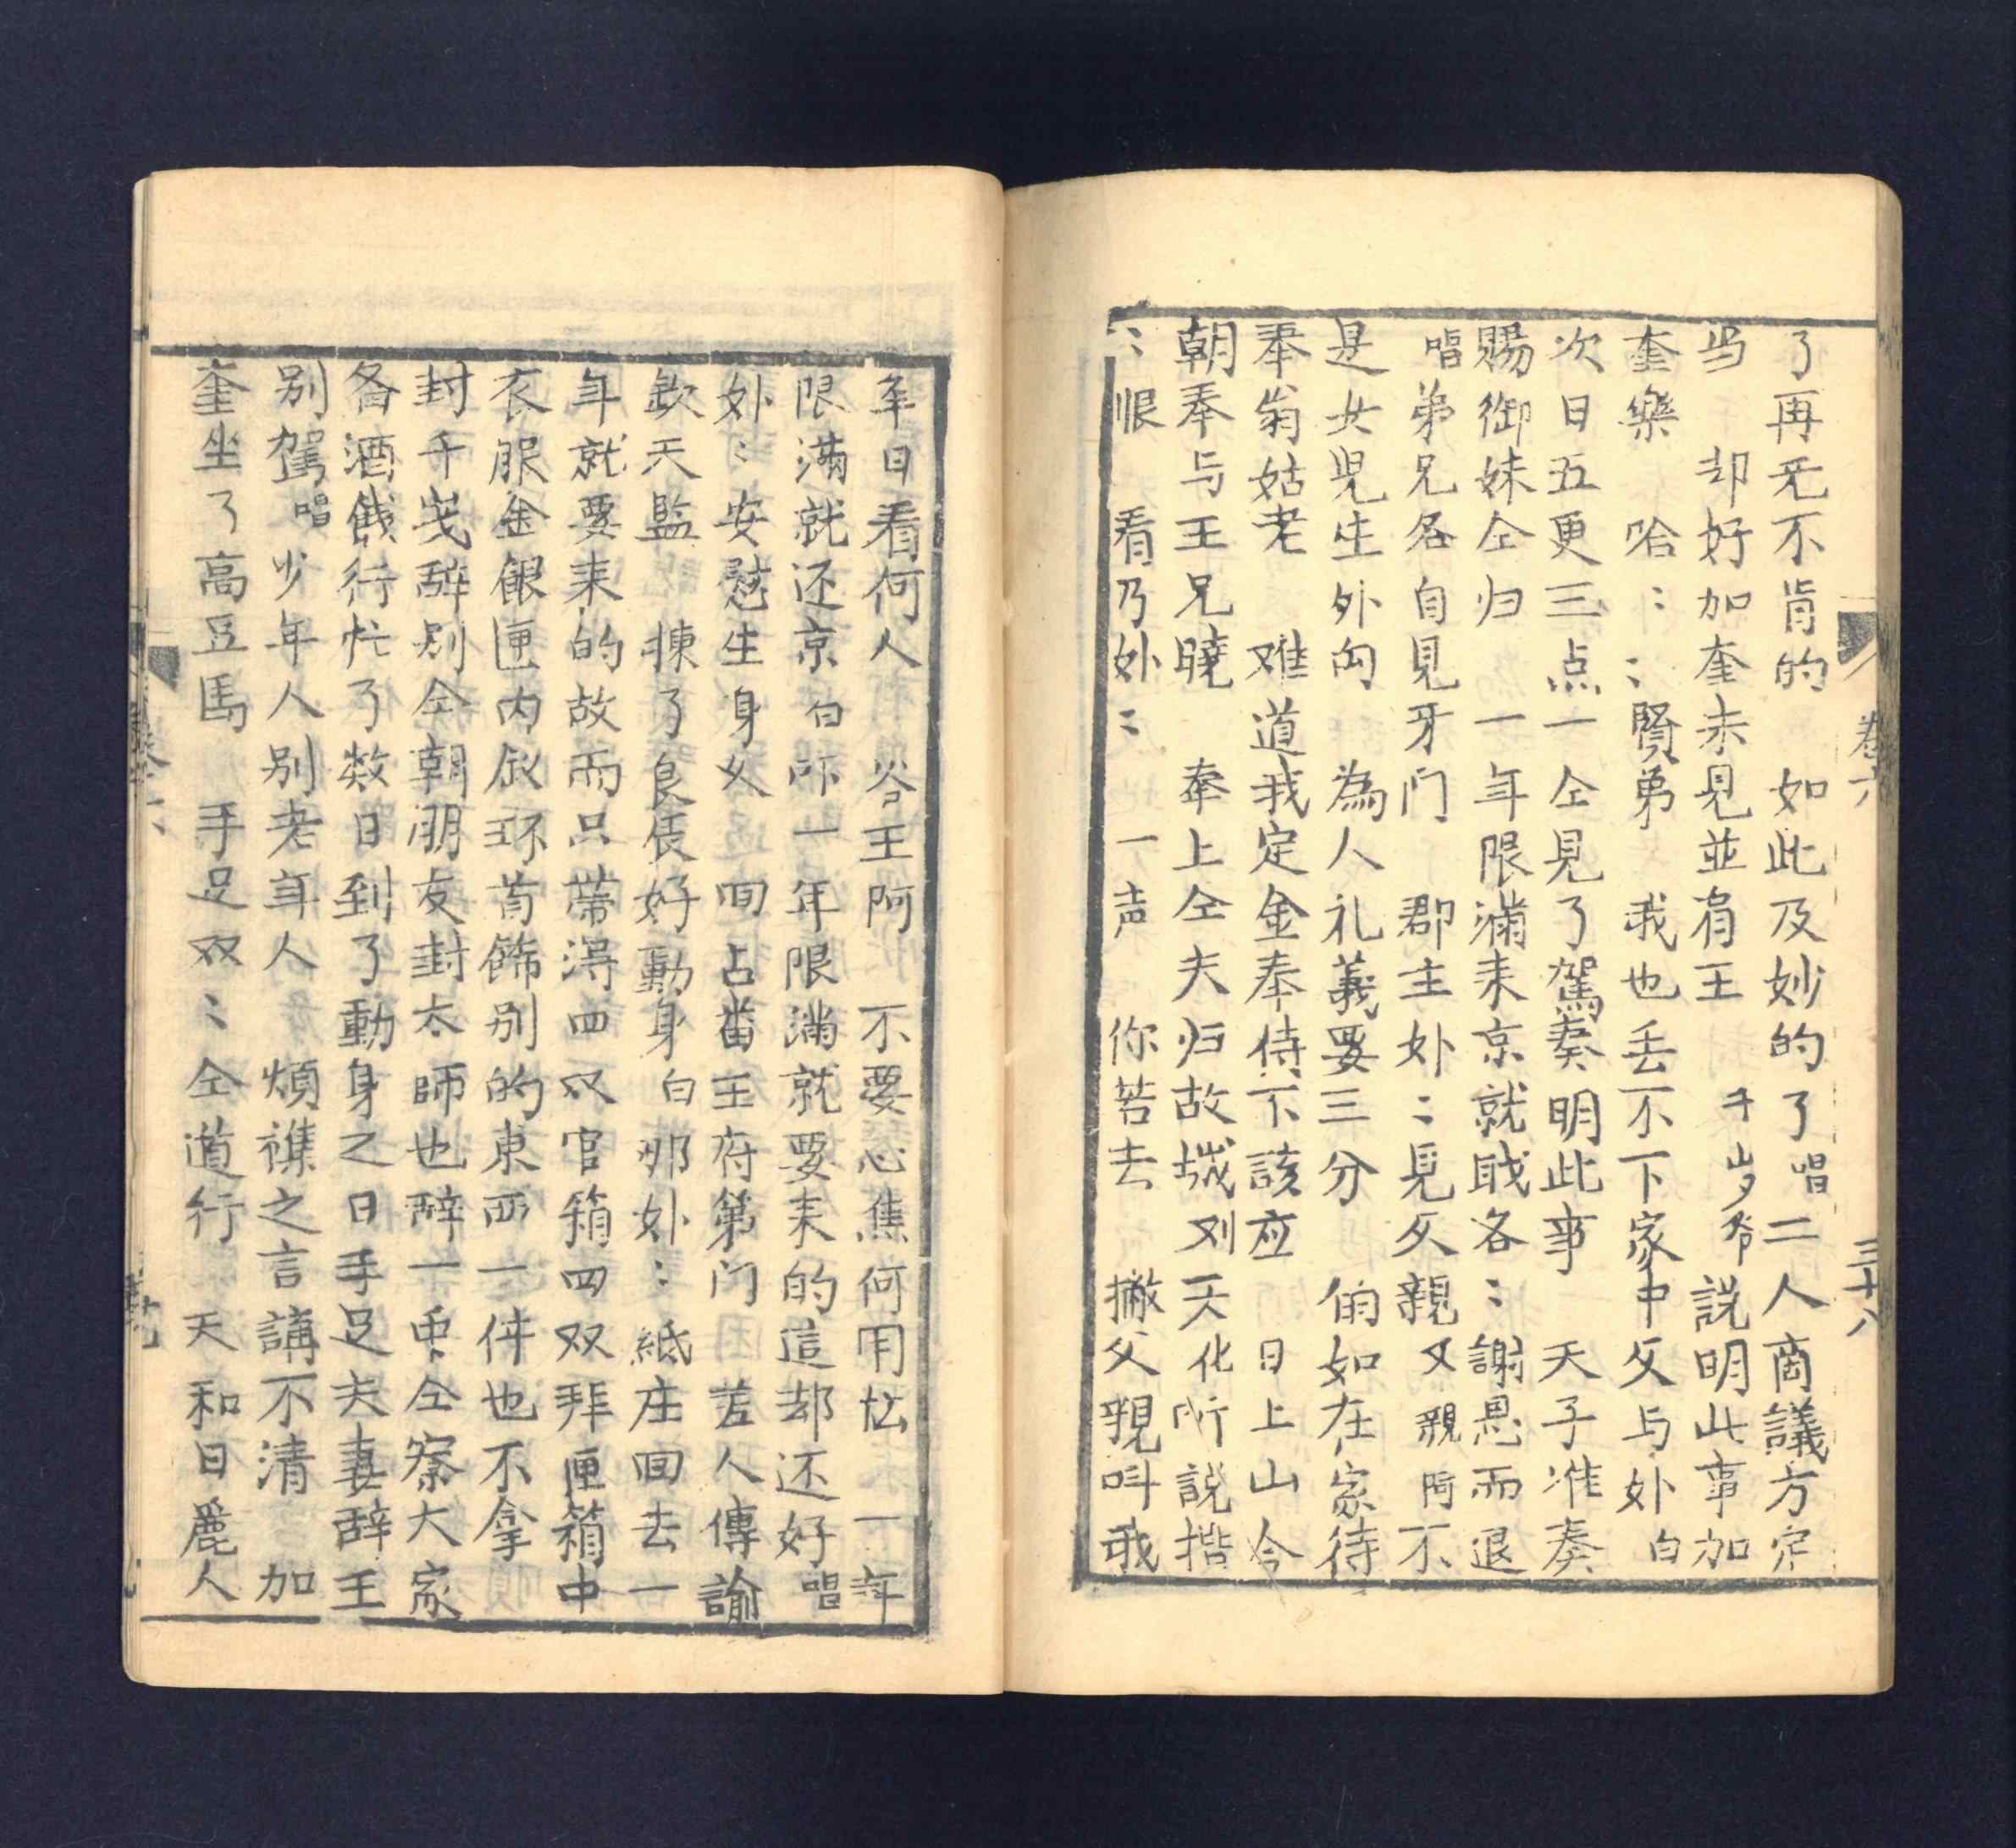 了再无不肯的　如此及妙的了唱二人商議方定
当　却好加奎未見並肩王　千岁爷　説明此事加
奎樂　哈〻〻賢弟　我也丢不下家中父与妣白
次日五更三点一仝見了駕奏明此事　天子准奏
賜御妹仝归　一年限滿来京就戝各〻謝恩而退
唱弟兄各自見牙门　郡主妣〻見父親　父親阿　不
是女児生外向　為人礼義要三分　的如在家待
奉翁姑老　难道我定金奉侍不該应　日上山今
朝奉与王兄曉　奉上仝夫归故城　刘天化所説揩
〻恨　看乃妣〻　一声　你若去　撇父親呌我
年日看何人　谷王阿　不要愁焦何用怯　一年
限滿就还京　白　吓一年限滿就要来的這却还好唱
妣〻安慰生身父　回占番王府第门　差人傳諭
欽天監　揀了良辰好動身　白　那妣〻紙庄回去一
年就要来的故而只帶淂四双官箱四双拜匣箱中
衣服金銀匣内釵环首飾别的東西一件也不拿
封千嵗辞别仝朝朋友封太師也辞一南仝寮大家
俻酒餞行忙了数日到了動身之日手足夫妻辞王
别駕唱少年人别老年人　煩襍之言講不清　加
奎坐了高豆馬　手足双〻仝道行　天和日麗人
卷六
三十八